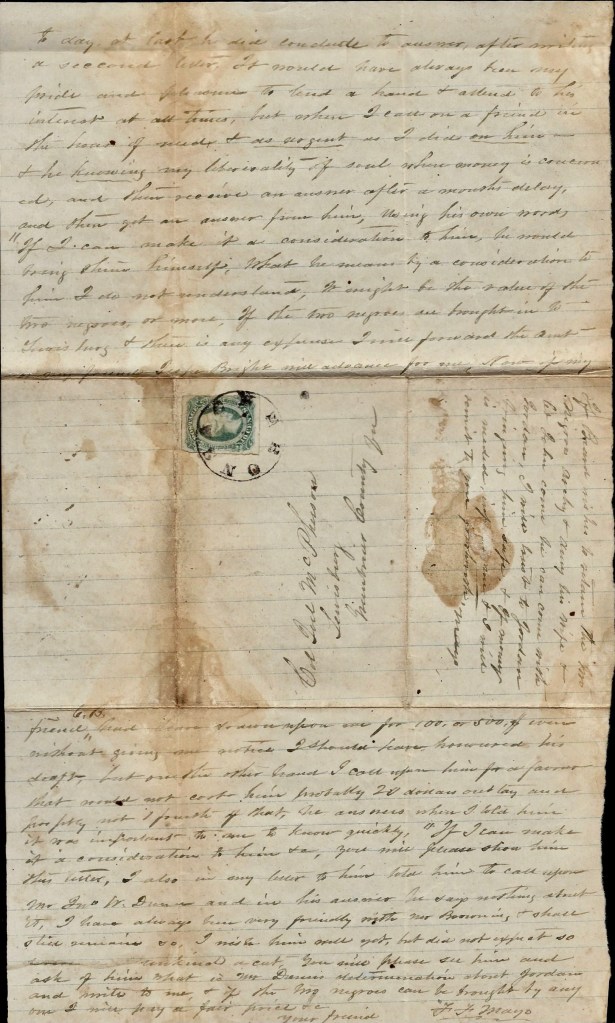 to day, at last he did conclude to answer, after writing
a seccond letter, It would have always been my
pride and pleasure to lend a hand & attend to his
interest at all times, but when I call on a friend in
the hour of need, & as urgent as I did on him —
& he knowing my liberality of soul when money is concern
ed, and then receive an answer after a months delay,
and then get an answer from him, using his own words,
"If I can make it a consideration to him, he would
bring them himself, What he means by a consideration to
him I do not understand, It might be the value of the
two negroes, or more, If the two negroes are brought in to
Lewisburg & there is any expense I will forward the amt
will advance for me, Now if my
friend had drawn upon me for 100, or 500, if even
without giving me notice I should have honoured his
draft, but on the other hand I call upon him for a favour
that would not cost him probably 20 dollars outlay and
possibly not ¼ fourth of that, he answers when I told him
it was important to me to know quickly, "If I can make
it a consideration to him &c, you will please show him
this letter, I also in my letter to him told him to call upon
Mr and in his answer he says nothing about
it, I have always been very friendly with Mr Browning, & shall
still remain so, I wish him well yet, but did not expect so
unkind a cut, You will please see him and
ask of him what is Mr determination about Jordan
and write to me, & if the negroes can be brought by any
one I will pay a fair price &c
your friend
Mayo
Col Joel McPherson
Lewisburg
Greenbrier County Va
wishes to return the two
negroes & his wife &
to come he can come with
Jordan, I will to Jordan
bringing him safe & if money
is needed & I will
remit to you Mayo